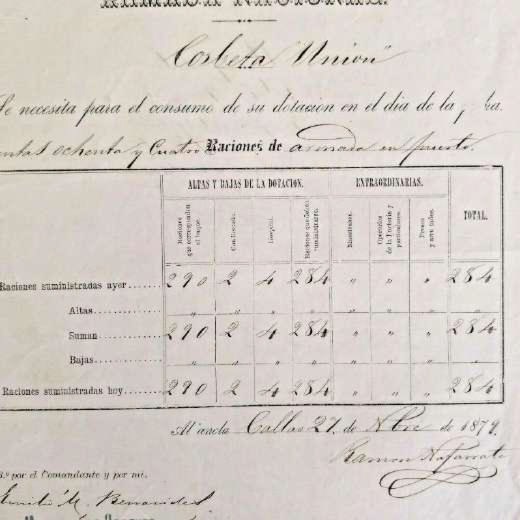 ARMADA NACIONAL.
Corbeta "Unión"
Se necesita para el consumo de su dotación en el día de la fha.
entas ochenta y cuatro Raciones de armada en puerto.
ALTAS Y BAJAS DE LA DOTACION. EXTRAORDINARIAS.
Raciones que corresponden al buque. Con licencia. Hospital. Raciones que deben suministrarse. Presos TOTAL.
Raciones suministradas ayer 290 2 4 284 " " " 284
Altas " " " " " " " "
Suman 290 2 4 284 " " " 284
Bajas " " " " " " " "
Raciones suministradas hoy 290 2 4 284 " " " 284
Al ancla Callao 27 de Nbre de 1879.
Ramon
B.º por el Comandante y por mi.
M. Benavides